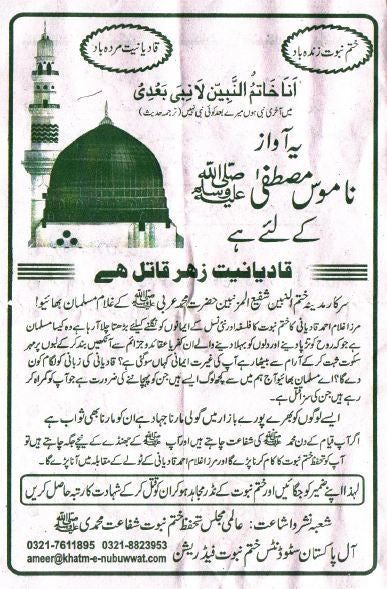 ختم نبوت زندہ باد
قادیانیت مردہ باد
اَنَا خَاتَمُ النَّبِیِّین لَا نَبِیَّ بَعْدِیْ
میں آخری نبی ہوں میرے بعد کوئی نبی نہیں (ترجمہ حدیث)
یہ آواز
ناموس مصطفیٰ ﷺ
کے لئے ہے
قادیانیت زھر قاتل ھے
سرکار مدینہ ختم النبین شفیع المذنبین حضرت محمد عربی ﷺ کے غلام مسلمان بھائیو!
مرزا غلام احمد قادیانی کا ختم نبوت کا فلسفہ اور نئی نسل کے ایمانوں کو نگلنے کیلئے بڑھتا چلا آ رہا ہے وہ کیا مسلمان
ہے جو کہ روح کو تڑپا دینے اور دلوں کو دہلا دینے والے ان کفریہ عقائد و عزائم سے آنکھیں بند کر کے لبوں پر مہر
سکوت ثبت کر کے آرام سے بیٹھا رہے آپ کی غیرت ایمانی کہاں سو گئی ہے؟ قادیانی کی زبانی کو لگام کون
دے گا؟ اے مسلمان بھائیو آج ہم میں سے کچھ لوگ ایسے ہیں جن کو پہچاننے کی ضرورت ہے جو آپ کو گمراہ کر
رہے ہیں جن کی سزا قتل ہے۔
ایسے لوگوں کو بھرے پورے بازار میں گولی مارنا جہاد ہے ان کو مارنا بھی ثواب ہے
اگر آپ قیام کے دن محمد ﷺ کی شفاعت چاہتے ہیں اور آپ ﷺ کے جھنڈے کے نیچے جگہ چاہتے ہیں تو
آپ کو تحفظ ختم نبوت کا کام کرنا پڑے گا اور مرزا غلام احمد قادیانی کے ٹولے کے مقابلہ میں آنا پڑے گا۔
لہذا اپنے ضمیر کو جگائیں اور ختم نبوت کے نڈر مجاہد ہو کر ان کو قتل کر کے شہادت کا رتبہ حاصل کریں
شعبہ نشر و اشاعت: عالمی مجلس تحفظ ختم نبوت شفاعت محمدی ﷺ
آل پاکستان سٹوڈنٹس ختم نبوت فیڈریشن
0321-7611895 0321-8823953
ameer@khatm-e-nubuwwat.com